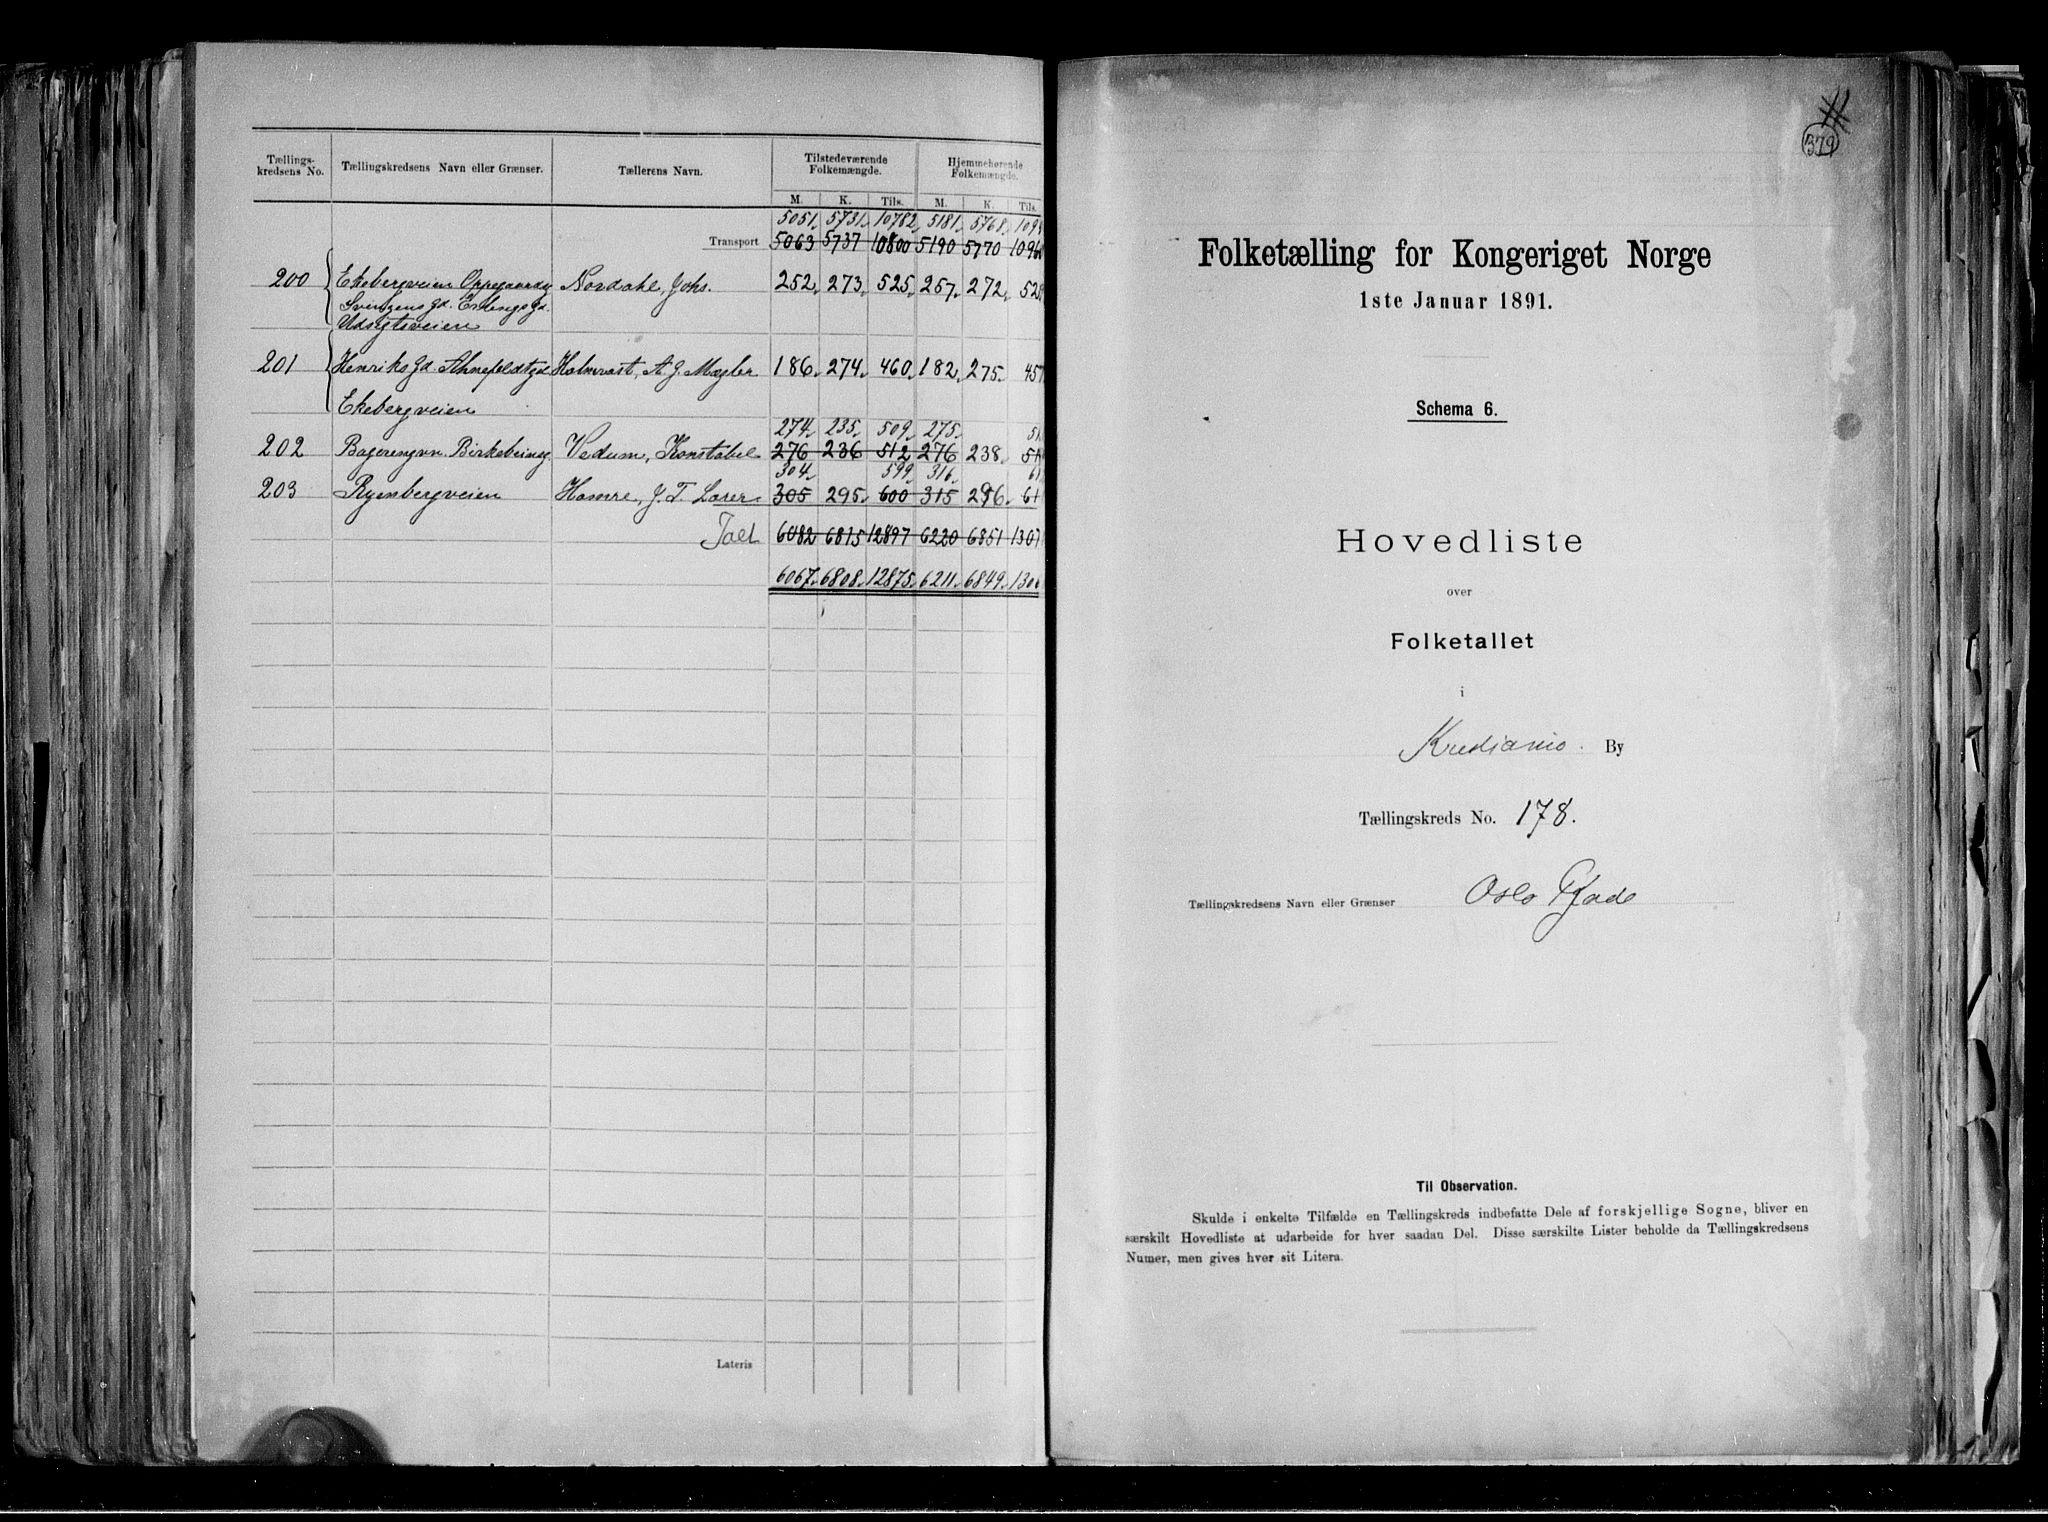 Tællings-kredsens No. Tællingskredsens Navn eller Grænser. Tællerens Navn. Tilstedeværende Folkemængde. Hjemmehørende Folkemængde.
M. K. Tils. M. K. Tils.
5051 5731 10782 5181 5768
Transport 5063 5737 10800 5190 5770 1096
200 Ekebergveien Oppegaardg Nordahl, Johs. 252 273 525 257 272 52
Gd.
Udsigtsveien
201 Henriks Gd. Ahnefeldtgd A. J. Mægler 186 274 460 182 275 457
Ekebergveien
274 235 509 275
202 Birkebeinerg Vedum, Konstabel 276 236 512 276 238 51
304 599 316
203 Ryenbergveien Hamre, J. T. Lærer 305 295 600 315 296 61
Ialt 6082 6815 12897 6220 6851 1307
6067 6808 12875 6211 6849 1306
Lateris
379
Folketælling for Kongeriget Norge
1ste Januar 1891.
Schema 6.
Hovedliste
over
Folketallet
i
Kristiania By
Tællingskreds No. 178.
Tællingskredsens Navn eller Grænser Oslo
Til Observation.
Skulde i enkelte Tilfælde en Tællingskreds indbefatte Dele af forskjellige Sogne, bliver en
særskilt Hovedliste at udarbeide for hver saadan Del. Disse særskilte Lister beholde da Tællingskredsens
Numer, men gives hver sit Litera.